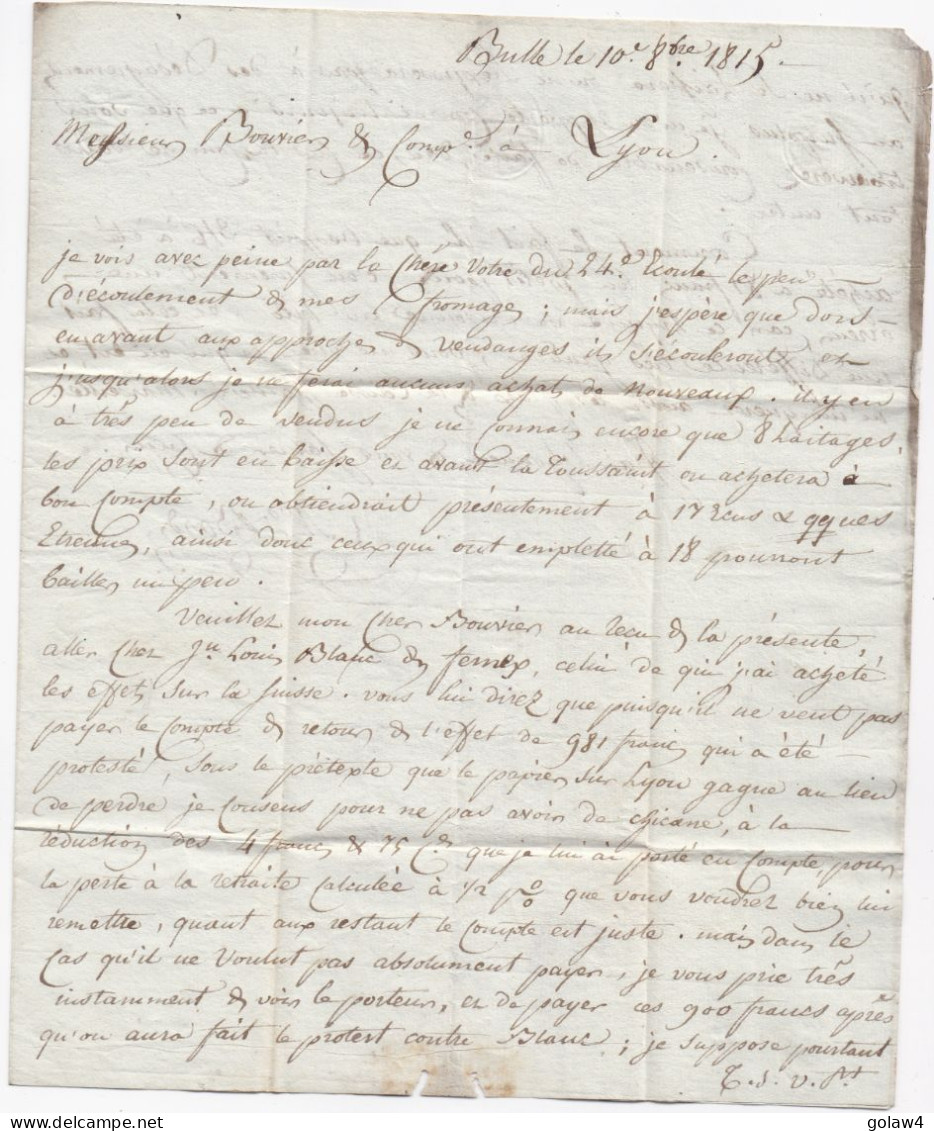 Bulle le 10.e 8bre. 1815.
Messieurs Bouvier & Compe. à Lyon
je vois avec peine par la Chère Votre du 24.e Ecoulé le peu
d'écoulement de mes fromages ; mais j'espère que dors
en avant aux approches de vendanges ils s'écouleront et
jusqu'alors je ne ferai aucuns achat de Nouveaux. il y en
à très peu de vendus je ne Connais encore que 8 Laitages,
les prix sont en baisse et avant la Toussaint on achetera à
bon compte, on obtiendrait présentement à 17 Ecus & qques
Etrennes, ainsi donc ceux qui ont empletté à 18 pourront
bailler un peu.
Veuillez mon Cher Bouvier au recu de la présente,
aller Chez Jn. Louis Blanc de fernex, celui de qui j'ai acheté
les effets sur la suisse. vous lui direz que puisqu'il ne veut pas
payer le Compte de retour de l'effet de 981 francs qui a été
protesté, sous le prétexte que le papier sur Lyon gagne au lieu
de perdre je Consens pour ne pas avoir de chicane, à la
réduction des 4 francs & 75 Cs que je lui ai porté en Compte, pour
la perte à la retraite Calculée à 1/2 p% que vous voudrez bien lui
remettre, quant aux restant le Compte est juste. mais dans le
Cas qu'il ne Voulut pas absolument payer, je vous prie très
instamment de voir le porteur, et de payer ces 900 francs après
qu'on aura fait le protest contre Blanc ; je suppose pourtant
T. s. v. pt
golaw4